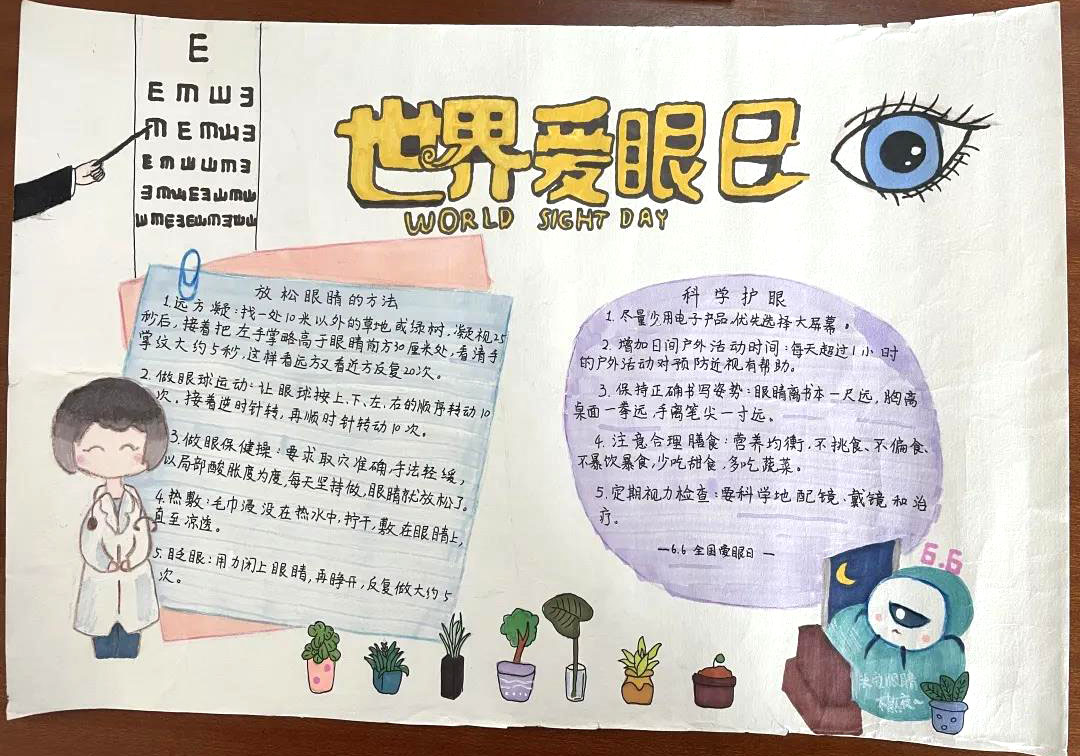 E
E m ш ヨ
m E m ш ヨ
E m ш ш m ヨ
ヨ m ш E ヨ ш m ш
ш m E ヨ E ш m ヨ m ш
世界爱眼日
WORLD SIGHT DAY
放松眼睛的方法
1.远方凝:找一处10米以外的草地或绿树,凝视25
秒后,接着把左手掌略高于眼睛前方30厘米处,看清手
掌纹大约5秒,这样看远方又看近方反复20次。
2.做眼球运动:让眼球按上、下、左、右的顺序转动10
次。接着逆时针转,再顺时针转动10次。
3.做眼保健操:要求取穴准确,手法轻缓,
以局部酸胀度为度,每天坚持做,眼睛就放松了。
4.热敷:毛巾浸没在热水中,拧干,敷在眼睛上,
直至凉透。
5.眨眼:用力闭上眼睛,再睁开,反复做大约5
次。
科学护眼
1.尽量少用电子产品,优先选择大屏幕。
2.增加日间户外活动时间:每天超过1小时
的户外活动对预防近视有帮助。
3.保持正确书写姿势:眼睛离书本一尺远,胸离
桌面一拳远,手离笔尖一寸远。
4.注意合理膳食:营养均衡,不挑食、不偏食、
不暴饮暴食,少吃甜食,多吃蔬菜。
5.定期视力检查:要科学地配镜、戴镜和治
疗。
—6.6 全国爱眼日—
6.6
眼睛